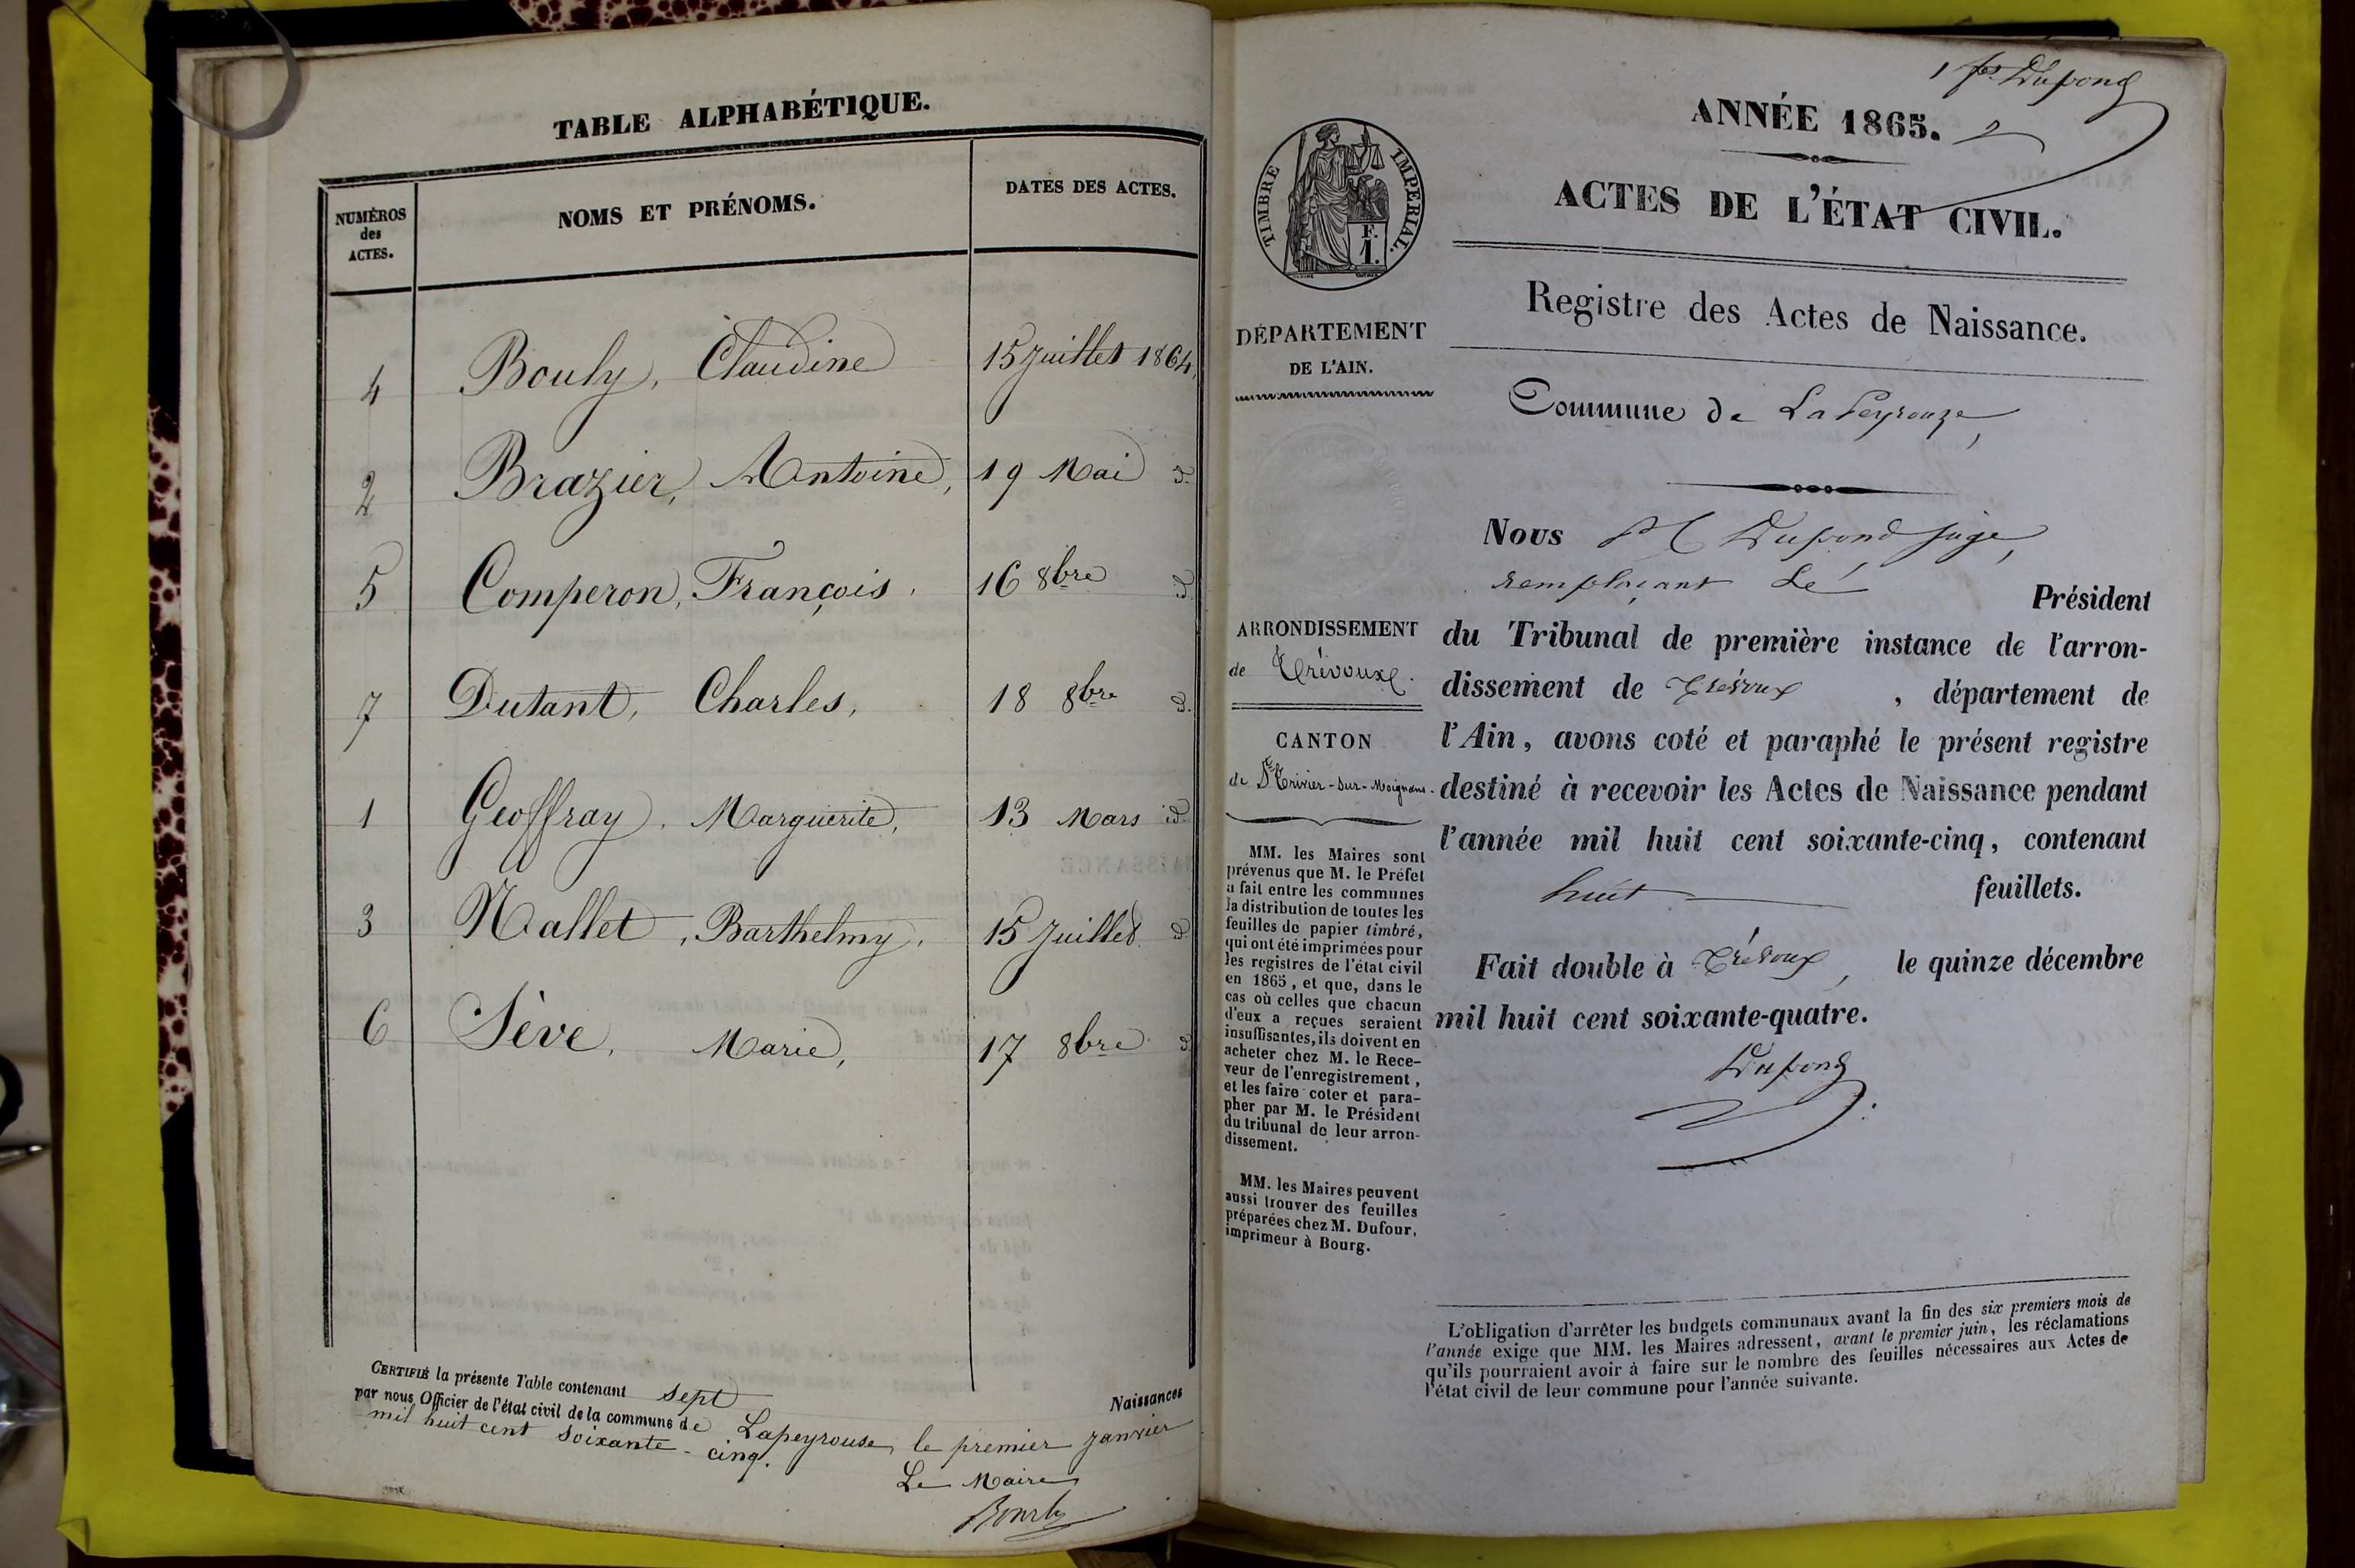 TABLE ALPHABÉTIQUE.
NUMÉROS
des
ACTES.
NOMS ET PRÉNOMS.
DATES DES ACTES.
4 Bouly, Claudine 15 Juillet 1864,
2 Brazier, Antoine, 19 Mai d.
5 Comperon, François. 16 8bre d.
7 Dutant, Charles, 18 8bre d.
1 Geoffray, Marguerite, 13 Mars id.
3 Mallet, Barthelmy, 15 Juillet d.
6 Sève, Marie, 17 8bre d.
CERTIFIÉ la présente Table contenant sept Naissances
par nous Officier de l'état civil de la commune de Lapeyrouse, le premier janvier
mil huit cent soixante-cinq.
Le Maire
1 Dupond
ANNÉE 1865.
ACTES DE L'ÉTAT CIVIL.
TIMBRE IMPERIAL.
F.
1.
Registre des Actes de Naissance.
DÉPARTEMENT
DE L'AIN.
Commune de La Peyrouze,
Nous Dupond juge,
remplaçant le Président
du Tribunal de première instance de l'arron-
dissement de Trévoux, département de
l'Ain, avons coté et paraphé le présent registre
destiné à recevoir les Actes de Naissance pendant
l'année mil huit cent soixante-cinq, contenant
huit feuillets.
Fait double à Trévoux, le quinze décembre
mil huit cent soixante-quatre.
Dupond
ARRONDISSEMENT
de Trévoux.
CANTON
de St Trivier-sur-Moignans.
MM. les Maires sont
prévenus que M. le Préfet
a fait entre les communes
la distribution de toutes les
feuilles de papier timbré,
qui ont été imprimées pour
les registres de l'état civil
en 1865, et que, dans le
cas où celles que chacun
d'eux a reçues seraient
insuffisantes, ils doivent en
acheter chez M. le Rece-
veur de l'enregistrement,
et les faire coter et para-
pher par M. le Président
du tribunal de leur arron-
dissement.
MM. les Maires peuvent
aussi trouver des feuilles
préparées chez M. Dufour,
imprimeur à Bourg.
L'obligation d'arrêter les budgets communaux avant la fin des six premiers mois de
l'année exige que MM. les Maires adressent, avant le premier juin, les réclamations
qu'ils pourraient avoir à faire sur le nombre des feuilles nécessaires aux Actes de
l'état civil de leur commune pour l'année suivante.